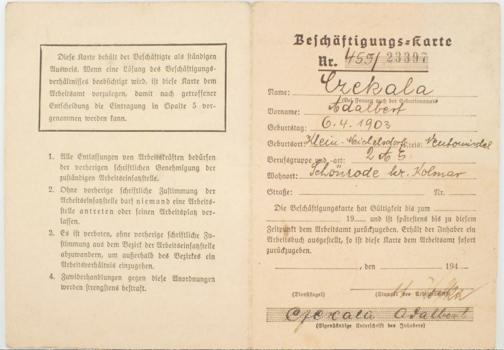 Diese Karte behält der Beschäftigte als ständigen
Ausweis. Wenn eine Lösung des Beschäftigungs-
verhältnisses beabsichtigt wird, ist diese Karte dem
Arbeitsamt vorzulegen, damit nach getroffener
Entscheidung die Eintragung in Spalte 5 vor-
genommen werden kann.
1. Alle Entlassungen von Arbeitskräften bedürfen
der vorherigen schriftlichen Genehmigung der
zuständigen Arbeitseinsatzstelle.
2. Ohne vorherige schriftliche Zustimmung der
Arbeitseinsatzstelle darf niemand eine Arbeits-
stelle antreten oder seinen Arbeitsplatz ver-
lassen.
3. Es ist verboten, ohne vorherige schriftliche Zu-
stimmung aus dem Bezirk der Arbeitseinsatzstelle
abzuwandern, um außerhalb des Bezirkes ein
Arbeitsverhältnis einzugehen.
4. Zuwiderhandlungen gegen diese Anordnungen
werden strengstens bestraft.
Beschäftigungs-Karte
Nr. 455/ 23397
Name: Czekala
(Bei Frauen auch der Geburtsname)
Vorname: Adalbert
Geburtstag: 6.4.1903
Geburtsort: Klein-Michelsdorf
Berufsgruppe und -art:
Wohnort: Schönrode kr. Kolmar
Straße: Nr.
Die Beschäftigungskarte hat Gültigkeit bis zum
19 und ist spätestens bis zu diesem
Zeitpunkt dem Arbeitsamt zurückzugeben. Erhält der Inhaber ein
Arbeitsbuch ausgestellt, so ist diese Karte dem Arbeitsamt sofort
zurückzugeben.
, den 194
(Dienstsiegel)
Czekala Adalbert
(Eigenhändige Unterschrift des Inhabers)